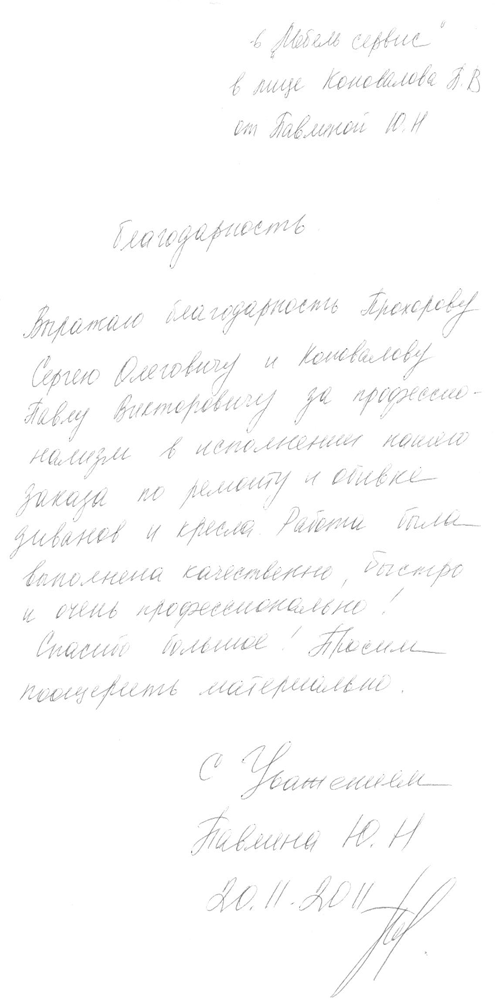 в "Мебель сервис"
в лице Коновалова П.В
от Павлиной Ю.Н
Благодарность
Выражаю благодарность Прохорову
Сергею Олеговичу и Коновалову
Павлу Викторовичу за профессио-
нализм в исполнении нашего
заказа по ремонту и обивке
диванов и кресла. Работа была
выполнена качественно, быстро
и очень профессионально!
Спасибо большое! Просим
поощерить материально.
С Уважением
Павлина Ю.Н
20.11.2011